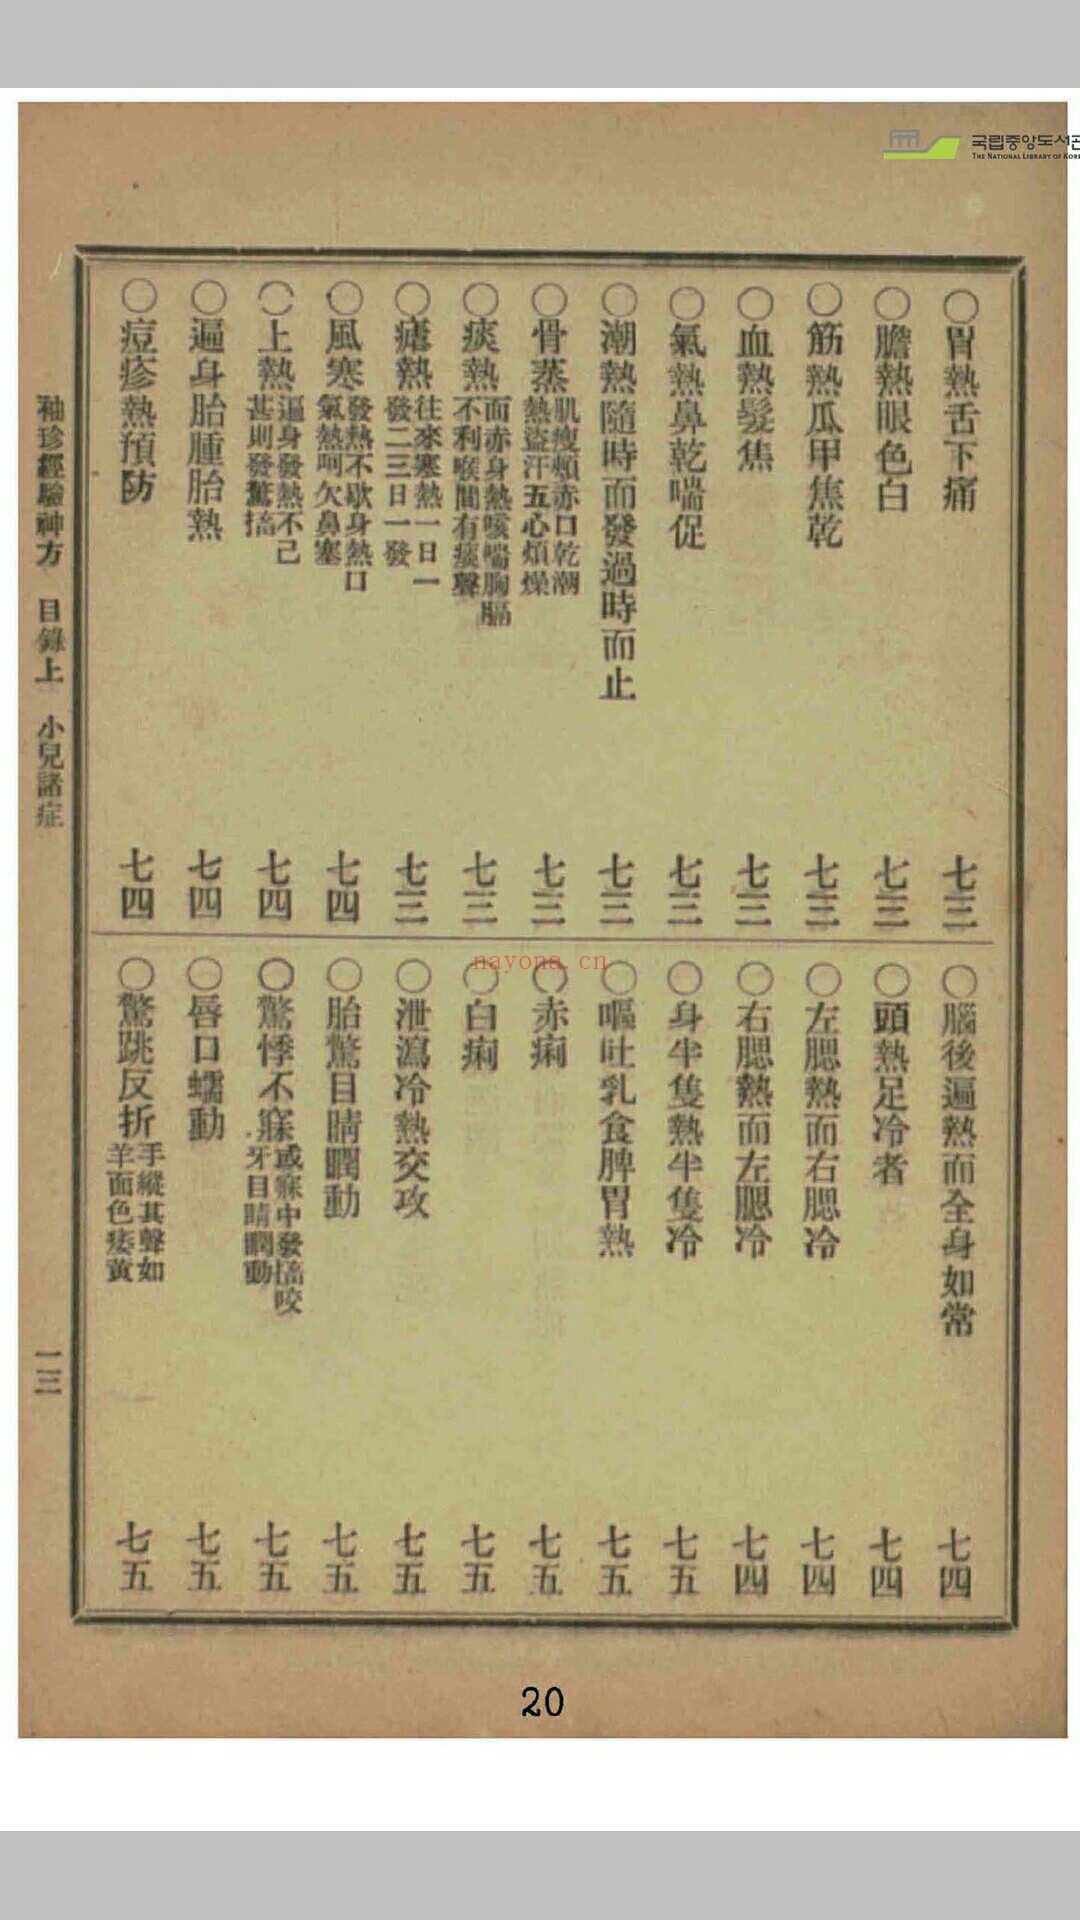 국립중앙도서관
THE NATIONAL LIBRARY OF KORE
〇胃熱舌下痛 七三
〇膽熱眼色白 七三
〇筋熱瓜甲焦乾 七三
〇血熱髮焦 七三
〇氣熱鼻乾喘促 七三
〇潮熱隨時而發過時而止 七三
〇骨蒸肌瘦頰赤口乾潮熱盜汗五心煩燥 七三
〇痰熱面赤身熱咳喘胸膈不利喉間有痰聲 七三
〇瘧熱往來寒熱一日一發二三日一發 七三
〇風寒發熱不歇身熱口氣熱呵欠鼻塞 七四
〇上熱遍身發熱不已甚則發驚搐 七四
〇遍身胎腫胎熱 七四
〇痘疹熱預防 七四
〇腦後遍熱而全身如常 七四
〇頭熱足冷者 七四
〇左腮熱而右腮冷 七四
〇右腮熱而左腮冷 七四
〇身半隻熱半隻冷 七五
〇嘔吐乳食脾胃熱 七五
〇赤痢 七五
〇白痢 七五
〇泄瀉冷熱交攻 七五
〇胎驚目睛瞤動 七五
〇驚悸不寐或寐中發搐咬牙目睛瞤動 七五
〇唇口蠕動 七五
〇驚跳反折手縱其聲如羊面色痿黃 七五
袖珍經驗神方 目錄上 小兒諸症 一三
nayona.cn
20